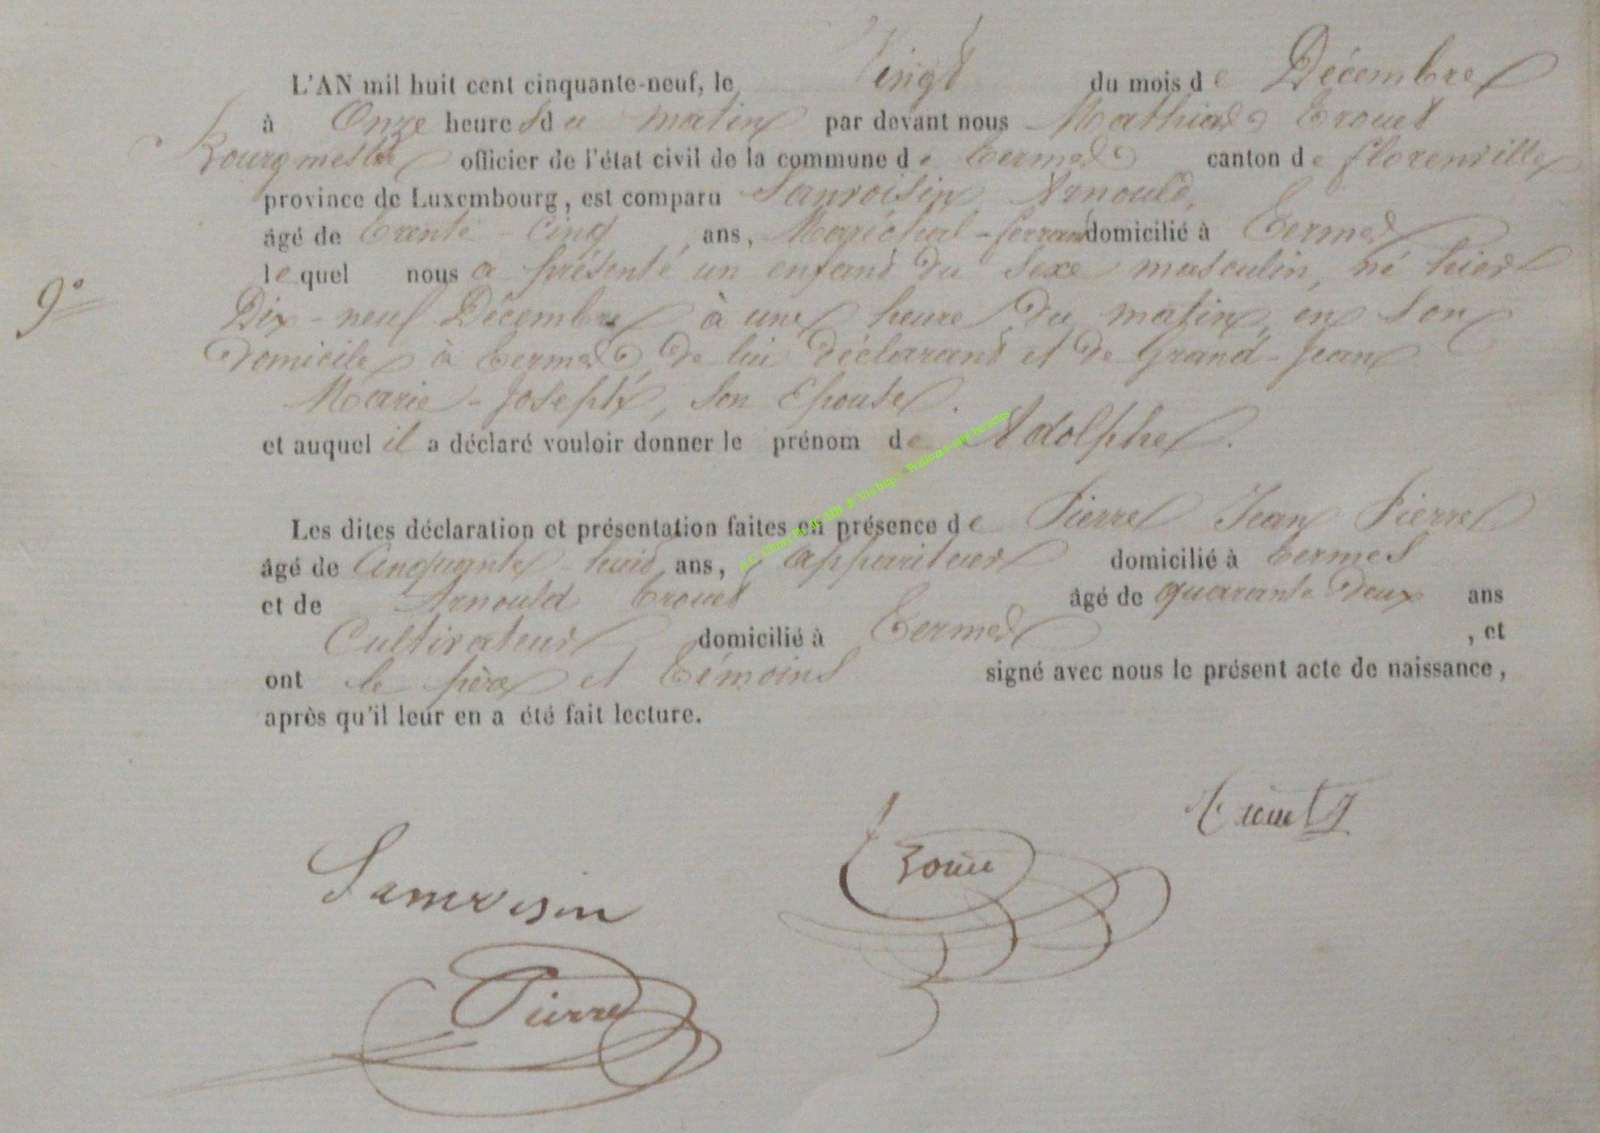 L'AN mil huit cent cinquante-neuf, le Vingt du mois de Décembre
à Onze heures du matin par devant nous Mathias Trouet
Bourgmestre officier de l'état civil de la commune de Termes canton de florenville
province de Luxembourg, est comparu Sanvoisin Arnould,
âgé de trente-cinq ans, Maréchal-ferrant domicilié à Termes
lequel nous a présenté un enfant du sexe masculin, né hier
9°
Dix-neuf Décembre à une heure du matin, en son
domicile à Termes, de lui déclarant et de Grand-Jean
Marie-Joseph, son Epouse.
et auquel il a déclaré vouloir donner le prénom de Adolphe.
Les dites déclaration et présentation faites en présence de Pierre Jean Pierre
âgé de Cinquante-huit ans, appariteur domicilié à Termes
et de Arnould Trouet âgé de quarante deux ans
Cultivateur, domicilié à Termes, et
ont le père et témoins signé avec nous le présent acte de naissance,
après qu'il leur en a été fait lecture.
Trouet
Sanvoisin
Pierre